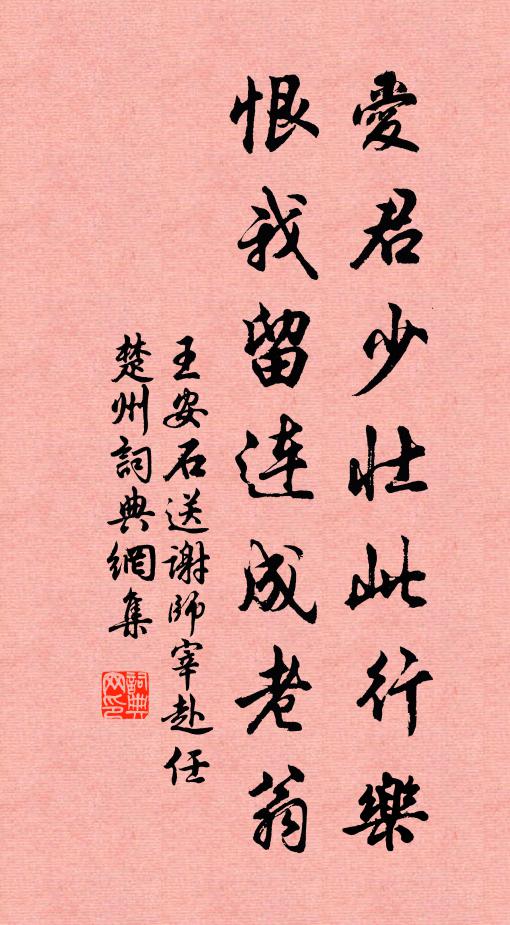 愛君少壯此行樂
恨我留連成老翁
王安石送謝師宰赴任
楚州詞典網集
詞典網印